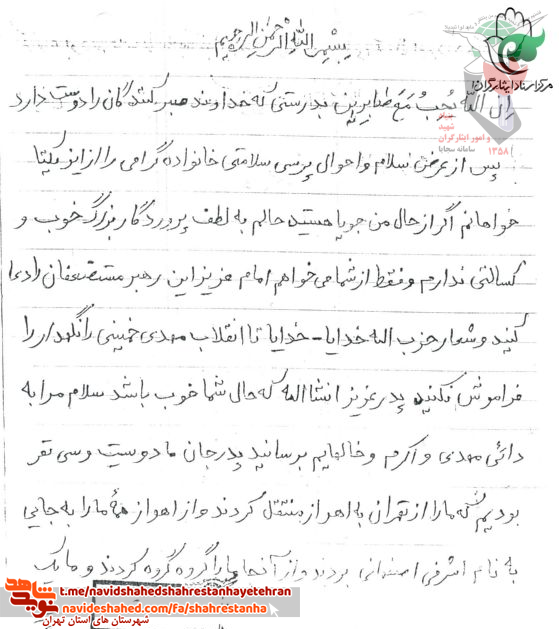 بسم الله الرحمن الرحیم
مرکز اسناد ایثارگران
ان الله یحب مع صابرین بدرستی که خداوند صبر کنندگان را دوست دارد
شهید
و امور ایثارگران
سامانه سجایا
۱۳۵۸
پس از عرض سلام و احوال پرسی سلامتی خانواده گرامی را از ایزد یکتا
خواهانم اگر از حال من جویا هستید حالم به لطف پروردگار بزرگ خوب و
کسالتی ندارم و فقط از شما می خواهم امام عزیز این رهبر مستضعفان را دعا
کنید و شعار حزب اله خدایا - خدایا تا انقلاب مهدی خمینی را نگهدار را
فراموش نکنید پدر عزیز انشااله که حال شما خوب باشد سلام مرا به
دائی مهدی و اکرم و خالهایم برسانید پدر جان ما دویست و سی نفر
بودیم که ما را از تهران به اهواز منتقل کردند و از اهواز همهٔ ما را به جایی
به نام اشرفی اصفهانی بردند و از آنجا ما را گروه گروه کردند و ما یک
نوید شاهد
t.me/navidshahedshahrestanhayetehran
navideshahed.com/fa/shahrestanha
شهرستان های استان تهران